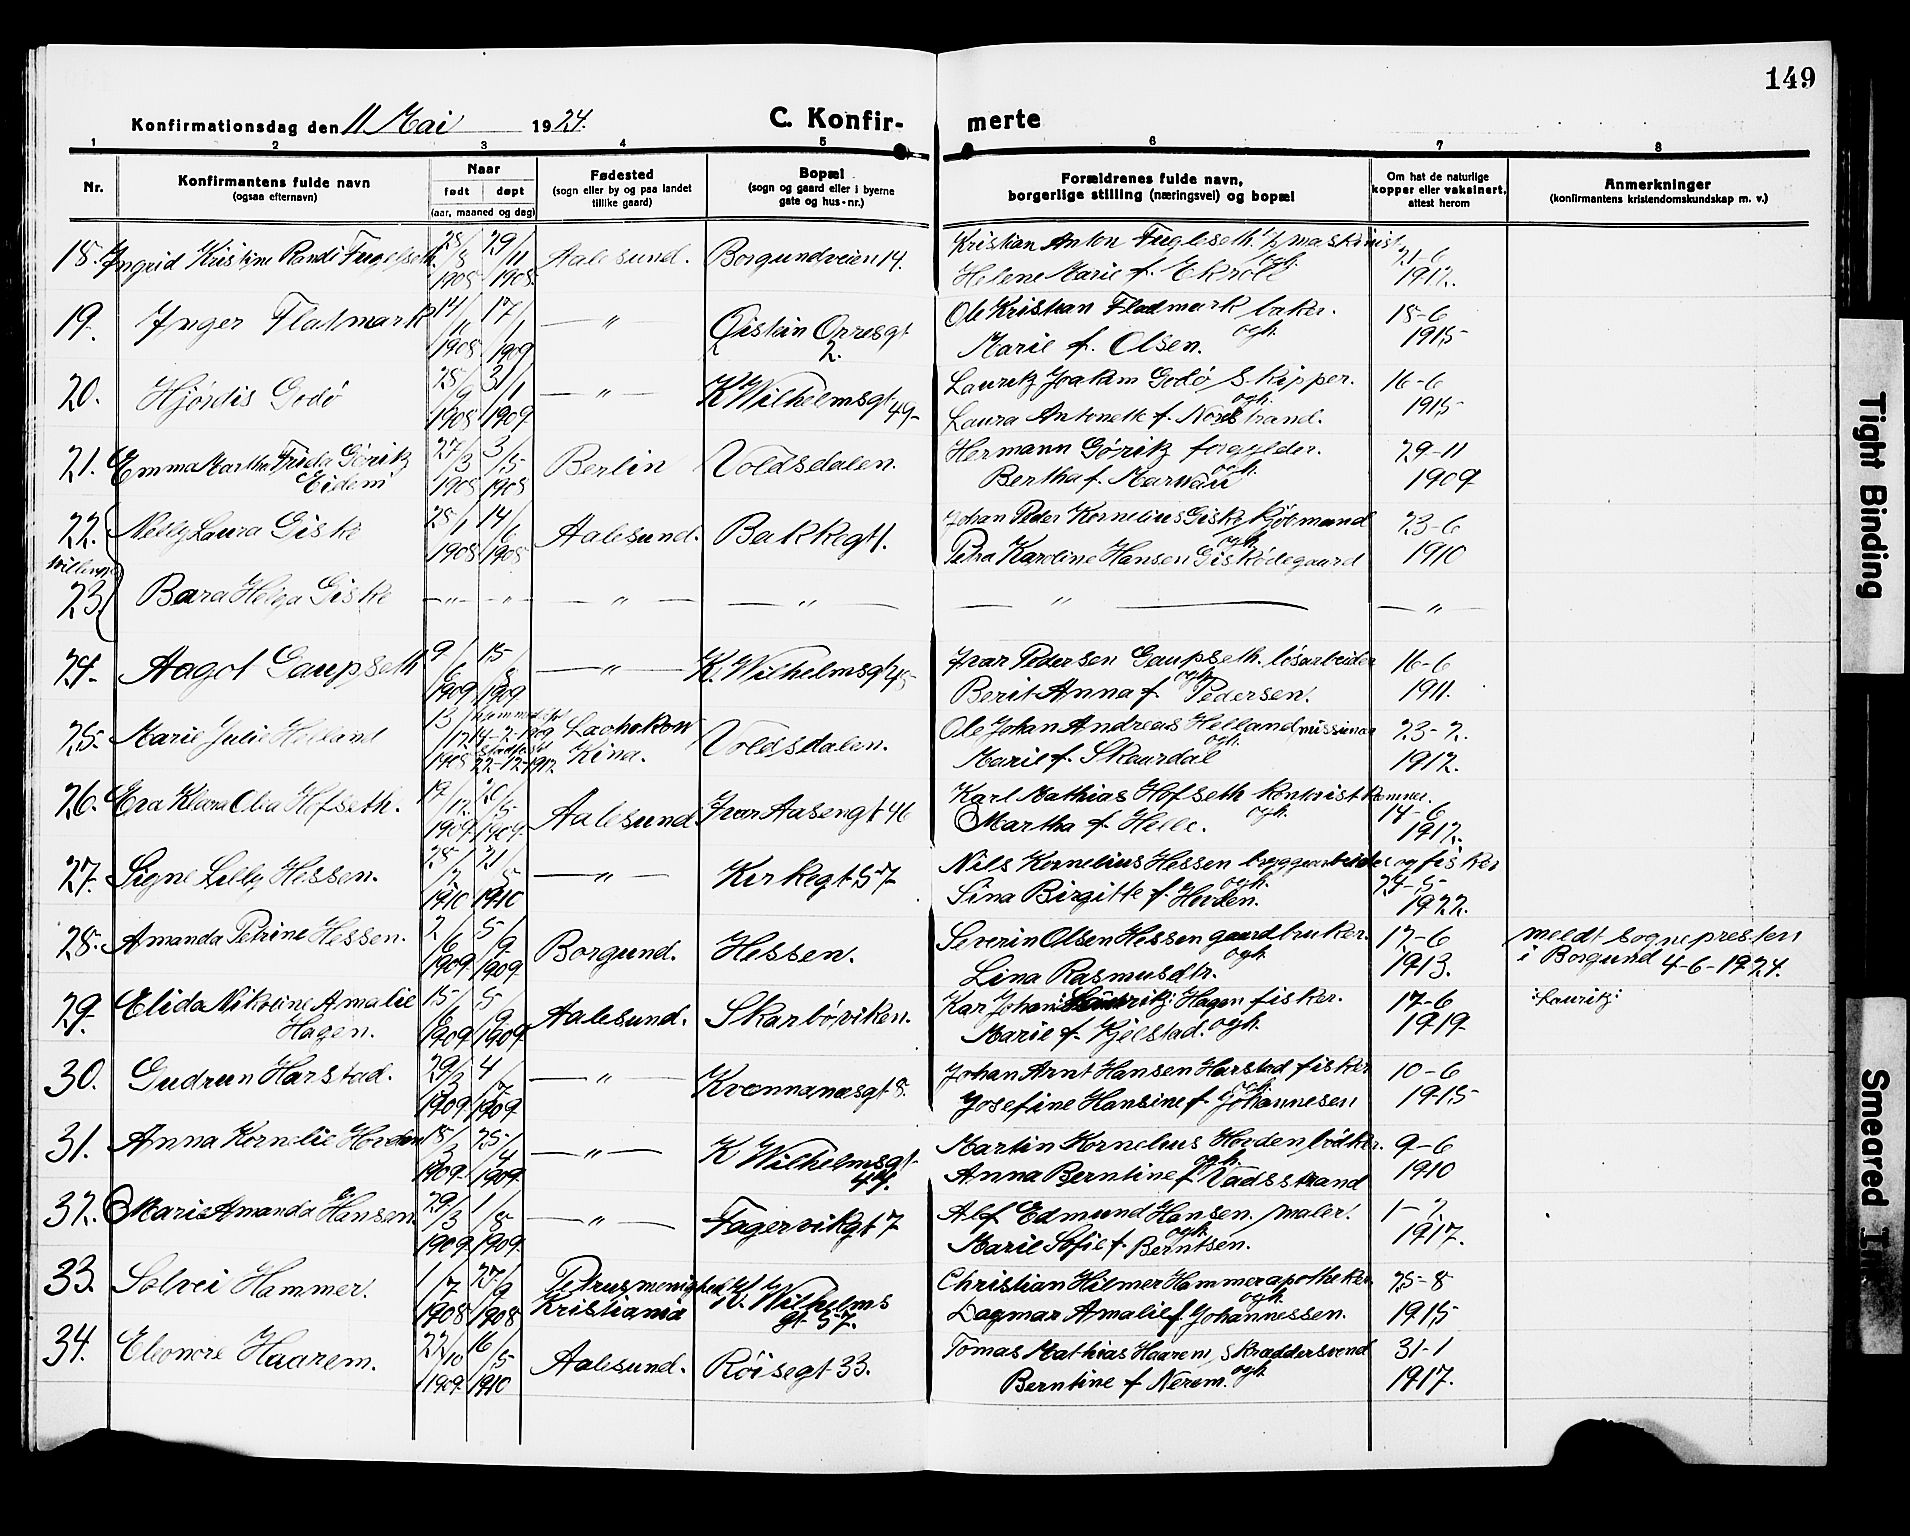 149
Konfirmationsdag den 11 Mai 1924. C. Konfir- merte
1 2 3 4 5 6 7 8
Nr.
Konfirmantens fulde navn
(ogsaa efternavn)
Naar
født døpt
(aar, maaned og dag)
Fødested
(sogn eller by og paa landet
tillike gaard)
Bopæl
(sogn og gaard eller i byerne
gate og hus-nr.)
Forældrenes fulde navn,
borgerlige stilling (næringsvei) og bopæl
Om hat de naturlige
kopper eller vaksinert,
attest herom
Anmerkninger
(konfirmantens kristendomskundskap m. v.)
18. Ingrid Kristine Randi Fugelseth 29/11 1908 Aalesund. Borgundveien 14. Kristian Anton Fugleseth, maskinist
ogh. Helene Marie f. Ekroll 21-6 1912.
19. Inger Flatmark 14/11 1908 17/1 1909 — " — Øistein Orresgt 2. Ole Kristian Fladmark baker.
ogh. Marie f. Olsen. 18-6 1915
20. Hjørdis Godø 1908 31/1 1909 — " — K Wilhelmsgt 49- Lauritz Joakim Godø Skipper.
ogh. Laura Antonette f. Nordstrand. 16-6 1915
21. Emma Martha Frida Göritz Eidem 27/3 1908 3/5 1908 Berlin Voldsdalen. Hermann Göritz forgylder.
ogh. Bertha f. Marnau 29-11 1909
22. Nelly Laura Giske 1908 14/6 1908 Aalesund. Bakkegt 1. Johan Peder Kornelius Giske kjøbmand
ogh. Petra Karoline Hansen Giskødegaard 23-6 1910
23 Bara Helga Giske — " — — " — — " — — " — — " — — " —
24. Aagot Gaupseth 9/6 1909 15/8 1909 — " — K. Wilhelmsgt 45 Ivar Pedersen Gaupseth. løsarbeider
ogh. Berit Anna f. Pedersen. 16-6 1911.
25. Marie Julie Helland 13/12 1908 14-2-1909 22-12-1912. Laohokow Kina. Voldsdalen. Ole Johan Andreas Helland missionær
ogh. Marie f. Skaardal 23-2. 1912.
26. Eva Klara Olia Hofseth. 1909 20/5 1909. Aalesund Ivar Aasengt 46 Karl Mathias Hofseth kontrist Kemner.
ogh. Martha f. Helle. 14-6 1912.
27. Signe Lilly Hessen. 1910 21/5 1910 — " — Kirkegt 57 Nils Kornelius Hessen bryggearbeider og fisker
ogh. Sina Birgitte f. Hovden. 24-5 1922.
28. Amanda Petrine Hessen. 2/6 1909 5/9 1909 Borgund. Hessen. Severin Olsen Hessen gaardbruker.
ogh. Lina Rasmusdtr. 17-6 1913. meldt sognepresten
i Borgund 4-6-1924.
29. Elida Nikoline Amalie Hagen. 15/6 1909 5/9 1909 Aalesund. Skarbøviken. Kar Johan Hagen fisker.
ogh. Marie f. Kjelstad. 17-6 1919. :Lauritz:
30. Gudrun Harstad. 29/3 1909. 4/7 1909. — " — Kvennanæsgt 8. Johan Arnt Hansen Harstad fisker
ogh. Josefine Hansine f. Johannesen 10-6 1915
31. Anna Kornelie Hovden 1909 25/4 1909. — " — K Wilhelmsgt 44. Martin Kornelius Hovden bødker.
ogh. Anna Berntine f. Vadsstrand 9-6 1910
32. Marie Amanda Hansen 29/3 1909. 1/8 1909. — " — Fagervikgt 7 Alf Edmund Hansen. maler.
ogh. Marie Sofie f. Berntsen. 1-2 1917.
33. Solvei Hammer. 1/7 1908 27/9 1908 Petrusmenighed Kristiania K. Wilhelms gt. 57. Christian Hilmer Hammer apotheker
ogh. Dagmar Amalie f. Johannessen. 25-8 1915
34. Eleonore Haarem. 22/10 1909. 16/5 1910 Aalesund. Röisegt 33. Tomas Mathias Haarem, skræddersvend
ogh. Berntine f Nerem. 31-1 1917.
Tight Binding
Smeared Ink